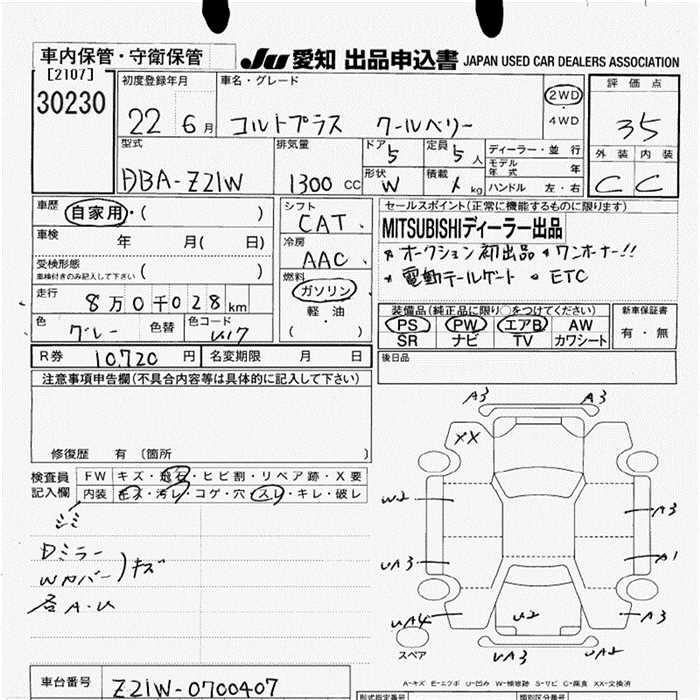 車内保管・守衛保管
Ju 愛知 出品申込書 JAPAN USED CAR DEALERS ASSOCIATION
[2107]
30230
初度登録年月
22 6月
車名・グレード
コルトプラス クールベリー
2WD
・
4WD
評価点
35
型式
DBA-Z21W
排気量
1300 CC
ドア
5
定員
5人
ディーラー・並行
モデル年式 年
ハンドル 左・右
形状
W
積載
kg
外装 内装
C C
車歴
自家用・( )
車検
年 月( 日)
受検形態
車検付きのみ記入して下さい ( )
走行
8万0千028km
色
グレー
色替
色コード
シフト
CAT
冷房
AAC
燃料
ガソリン
・
軽油
( )
セールスポイント(正常に機能するものに限ります)
MITSUBISHIディーラー出品
* オークション初出品 * ワンオーナー!!
* 電動テールゲート ・ ETC
装備品(純正品に限り○をつけてください)
PS PW エアB AW
SR ナビ TV カワシート
新車保証書
有・無
R券 10,720 円
名変期限 月 日
後日品
注意事項申告欄(不具合内容等は具体的に記入して下さい)
修復歴 有 (箇所 )
検査員記入欄
FW キズ・飛石・ヒビ割・リペア跡・X要
内装 キズ・汚レ・コゲ・穴・スレ・キレ・破レ
シミ
Dミラー
WカバーD)キズ
各A・U
A3 A3
XX
W2
A3
UA3
A1
UA4
U2
A3
UA3
UA2
スペア
A-キズ E-エクボ U-凹み W-補修跡 S-サビ C-腐食 XX-交換済
車台番号
Z21W-0700407
型式指定番号
類別区分番号